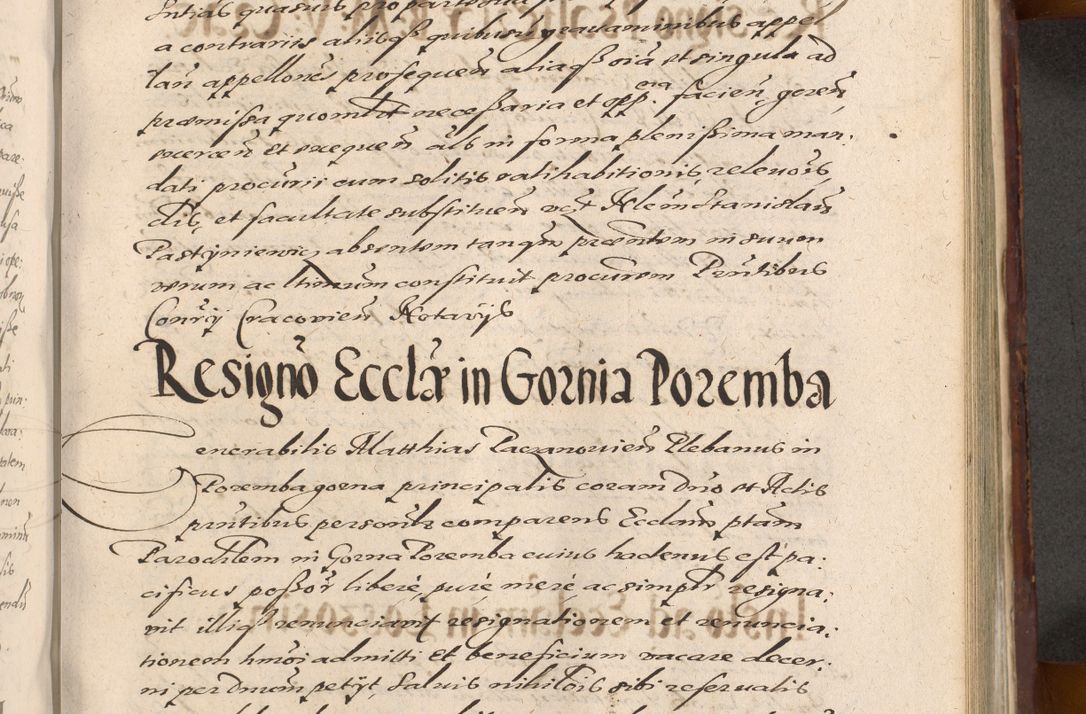 a contrariis aliisqß quibusvis gravaminibus appel
lan̄ appellones prosequen̄ aliaqß oīa et singula ad
præmissa quomlt necessaria et opp.ⁿᵃ facien̄, geren̄,
exercen̄ et exequen̄ als in forma plenissima man,
dati procurii cum solitis ratihabitionis, relevois,
dis, et facultate substituen̄ vct Nlem Stanislaū
Pastyniewicz absentem tanqm præntem in suum
verum ac ltimum constituit procurem Prntibus
Consrij Cracovien̄ Notarijs
Resigno Ecclæ in Gornia Poremba
Venerabilis Matthias Paczanovien̄ Plebanus in
Poremba gorna principalis coram dno et Actis
prntibus personlr comparens Ecclam ptam
Parochlem in Gorna Poremba cuius hactenus est pa,
cificus possor liberé, puré meré ac simplr resigna,
vit illiqß renunciavit resignationem et renuncia,
tionem hmoi admitti et beneficium vacare decer,
ni per dnum petijt, Salvis nihilois sibi reservatis